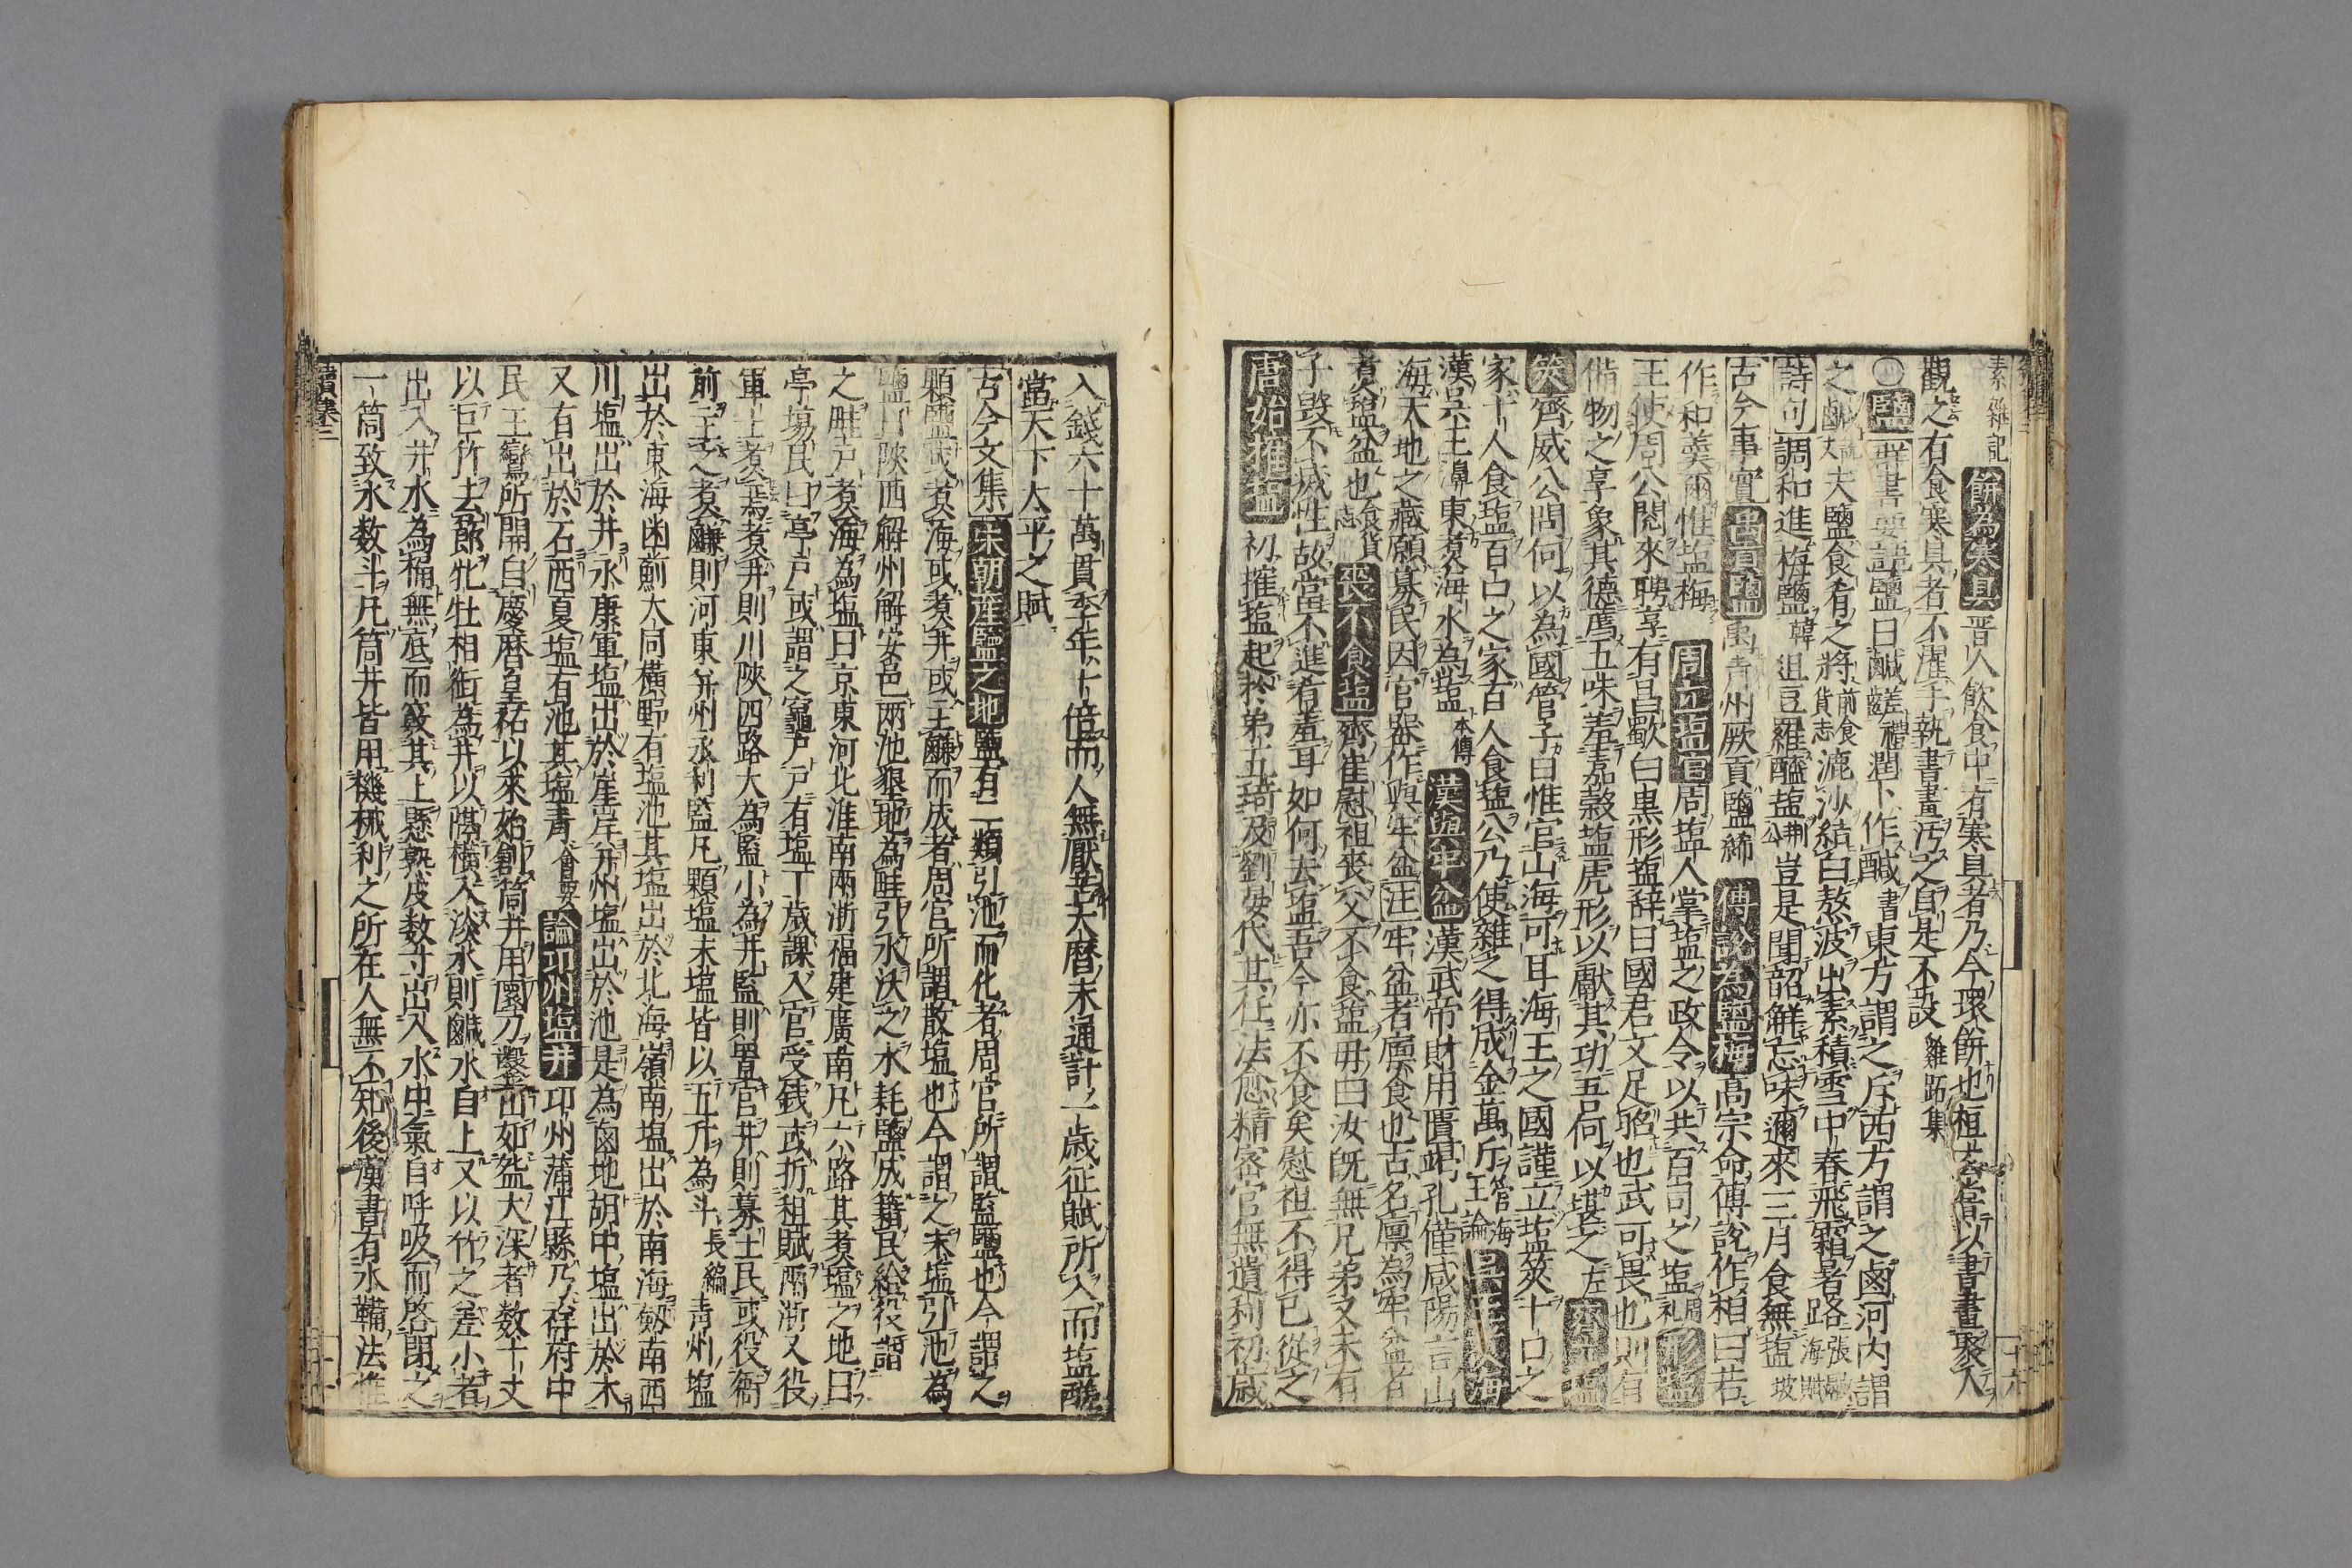 素雜記 餅為寒具 晋人飲食中有寒具者乃今環餅也桓玄嘗以書畫聚人
觀之有食寒具者不濯手執書畫汚之自是不設 雞跖集
〇鹽 群書要語 鹽曰鹹鹺禮潤下作鹹書東方謂之斥西方謂之鹵河内謂
之鹹說文夫鹽食肴之將前食貨志漉沙結白熬波出素積雪中春飛霜暑路張融海賦
詩句 調和進梅鹽韓 俎豆羅醯塩荆公豈是聞韶觧忘味邇來三月食無塩坡
古今事實 禹貢鹽 禹青州厥貢鹽絺 傅說為鹽梅 高宗命傅說作相曰若
作和羹爾惟塩梅 周立塩官 周塩人掌塩之政令以共百司之塩周礼 形塩
王使周公閱來聘享有昌歜白黒形塩辞曰國君文足昭也武可畏也則有
偹物之享象其德薦五味羞嘉穀塩虎形以獻其功吾何以堪之左 齊立塩
筴 齊威公問何以為國管子曰惟官山海可耳海王之國謹立塩筴十口之
家十人食塩百口之家百人食塩公乃使雜之得成金萬斤管海王論 吳王煮海
漢吳王濞東煮海水為塩本傳 漢與牢盆 漢武帝財用匱竭孔僅咸陽言山
海天地之藏願募民因官器作與牢盆注牢盆者廪食也古名廪為牢盆者
煮塩盆也食貨志 喪不食塩 齊崔慰祖丧父不食塩毋曰汝旣無兄弟又未有
子毀不㓕性故當不進肴羞耳如何去塩吾今亦不食矣慰祖不得已從之
唐始搉塩 初搉塩起於弟五琦及劉晏代其任法愈精宻官無遺利初歳
入錢六十萬貫季年十倍而人無厭苦大曆末通計一歳征賦所入而塩醝
當天下太平之賦
古今文集 宋朝産鹽之地 鹽有二類引池而化者周官所謂監鹽也今謂之
顆鹽或煮海或煮井或土鹻而成者周官所謂散塩也今謂之末塩引池為
鹽曰陜西解州解安邑兩池墾地為畦引水沃之水耗鹽成籍民給役謂
之畦戸煮海為塩曰京東河北淮南兩浙福建廣南凡六路其煮塩之地曰
亭塲民曰亭戸或謂之竈戸戸有塩丁歳課入官受銭或折租賦兩浙又役
軍士煮焉煮井則川陜四路大為監小為井監則置官井則募土民或役衙
前主之煮鹻則河東并州永利監凡顆塩末塩皆以五斤為斗長編青州塩
出於東海幽薊大同横野有塩池其塩出於北海嶺南塩出於南海劔南西
川塩出於井永康軍塩出於崖岸并州塩出於池是為鹵地胡中塩出於木
又有出於石西夏塩有池其塩青會要 論卭州塩井 卭州蒲江縣乃祥符中
民王鸞所開自慶暦皇祐以來始創筒井用圜刀鑿出如盌大深者数十丈
以巨竹去節牝牡相銜為井以隔横入淡水則鹹水自上又以竹之差小者
出入井水為桶無底而竅其上懸熟皮数寸出入水中氣自呼吸而啓閉之
一筒致水数斗凡筒井皆用機械利之所在人無不知後漢書有水鞴法惟
續卷三